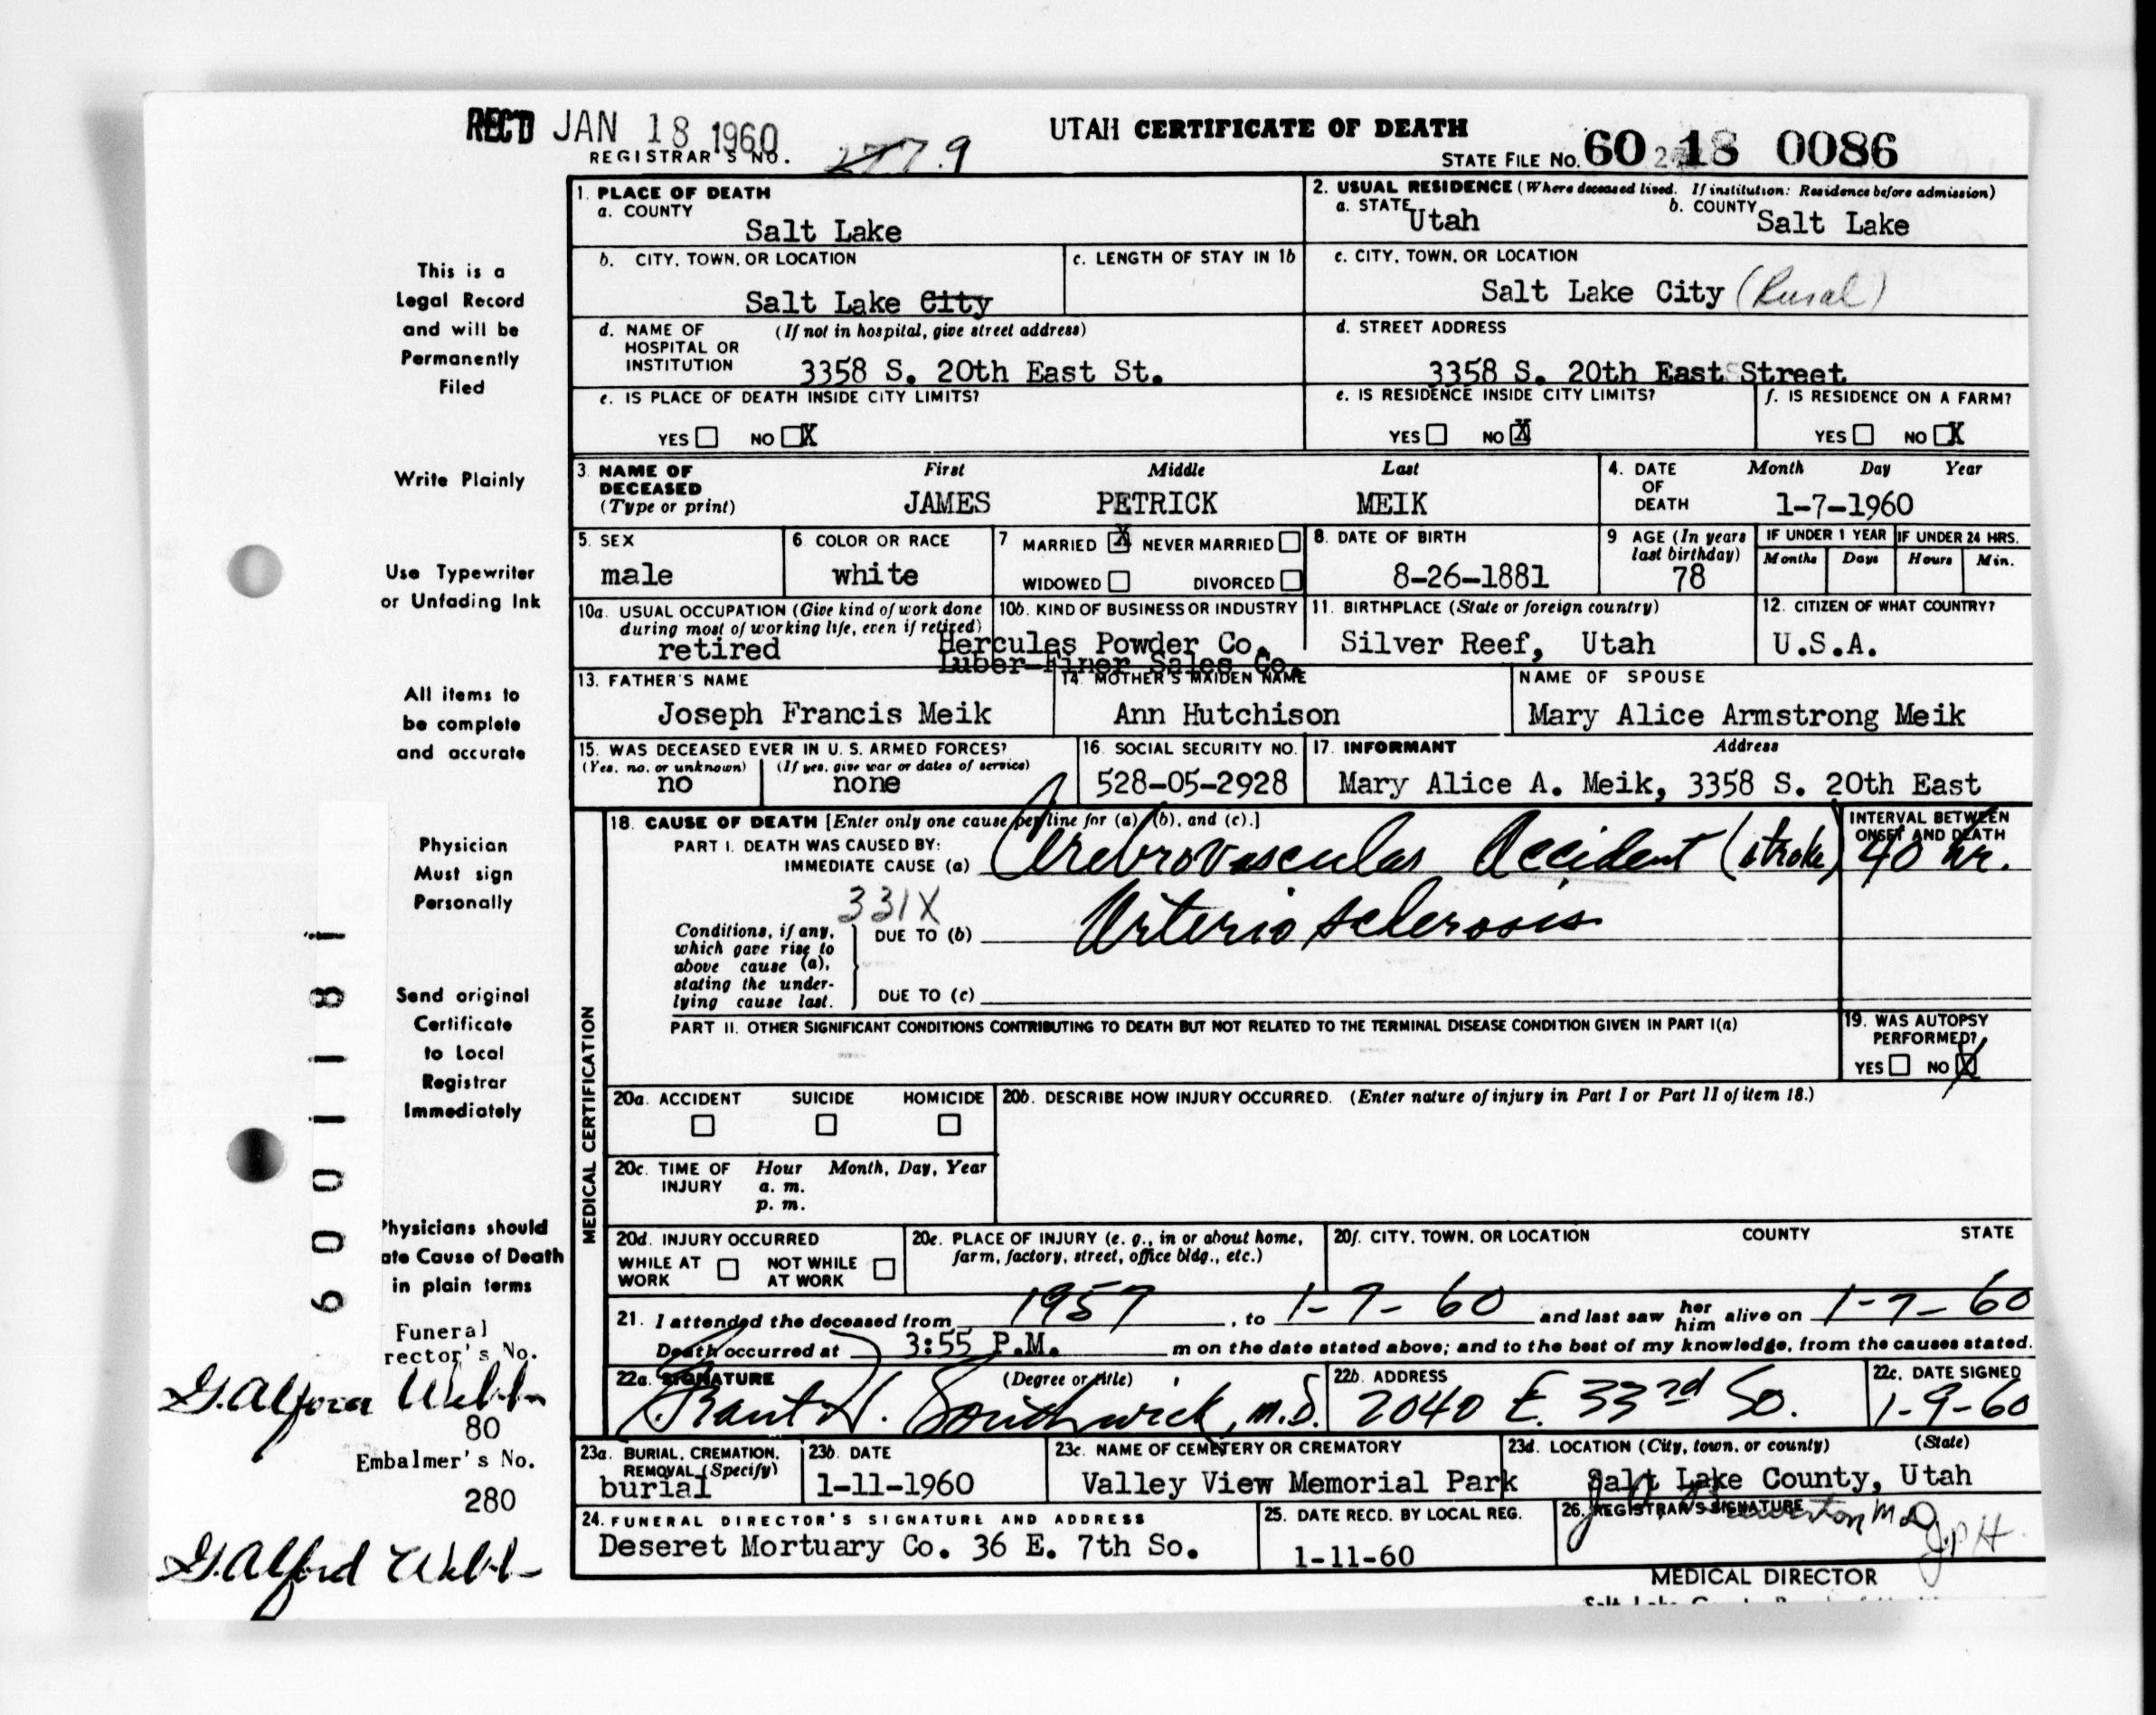 REC'D JAN 18 1960
UTAH CERTIFICATE OF DEATH
REGISTRAR'S NO. 277.9
STATE FILE No. 60 18 0086
This is a
Legal Record
and will be
Permanently
Filed
Write Plainly
Use Typewriter
or Unfading Ink
All items to
be complete
and accurate
Physician
Must sign
Personally
Send original
Certificate
to Local
Registrar
Immediately
Physicians should
ate Cause of Death
in plain terms
Funeral
rector's No.
G. Alford Webb
80
Embalmer's No.
280
G. Alford Webb
6001181
1. PLACE OF DEATH
a. COUNTY
Salt Lake
2. USUAL RESIDENCE (Where deceased lived. If institution: Residence before admission)
a. STATE Utah
b. COUNTY Salt Lake
b. CITY, TOWN, OR LOCATION
Salt Lake City
c. LENGTH OF STAY IN 1b
c. CITY, TOWN, OR LOCATION
Salt Lake City (Rural)
d. NAME OF (If not in hospital, give street address)
HOSPITAL OR
INSTITUTION 3358 S. 20th East St.
d. STREET ADDRESS
3358 S. 20th East Street
e. IS PLACE OF DEATH INSIDE CITY LIMITS?
YES NO X
e. IS RESIDENCE INSIDE CITY LIMITS?
YES NO X
f. IS RESIDENCE ON A FARM?
YES NO X
3. NAME OF First Middle Last
DECEASED
(Type or print) JAMES PETRICK MEIK
4. DATE Month Day Year
OF
DEATH 1-7-1960
5. SEX
male
6. COLOR OR RACE
white
7 MARRIED X NEVER MARRIED
WIDOWED DIVORCED
8. DATE OF BIRTH
8-26-1881
9 AGE (In years
last birthday)
78
IF UNDER 1 YEAR IF UNDER 24 HRS.
Months Days Hours Min.
10a. USUAL OCCUPATION (Give kind of work done
during most of working life, even if retired)
retired
10b. KIND OF BUSINESS OR INDUSTRY
Hercules Powder Co.
Luber-Finer Sales Co.
11. BIRTHPLACE (State or foreign country)
Silver Reef, Utah
12. CITIZEN OF WHAT COUNTRY?
U.S.A.
13. FATHER'S NAME
Joseph Francis Meik
14. MOTHER'S MAIDEN NAME
Ann Hutchison
NAME OF SPOUSE
Mary Alice Armstrong Meik
15. WAS DECEASED EVER IN U. S. ARMED FORCES?
(Yes, no, or unknown) (If yes, give war or dates of service)
no none
16. SOCIAL SECURITY NO.
528-05-2928
17. INFORMANT Address
Mary Alice A. Meik, 3358 S. 20th East
MEDICAL CERTIFICATION
18. CAUSE OF DEATH [Enter only one cause per line for (a), (b), and (c).]
PART I. DEATH WAS CAUSED BY:
IMMEDIATE CAUSE (a) Cerebrovascular Accident (stroke)
INTERVAL BETWEEN
ONSET AND DEATH
40 hr.
331X
Conditions, if any,
which gave rise to
above cause (a),
stating the under-
lying cause last.
DUE TO (b) Arteriosclerosis
DUE TO (c)
PART II. OTHER SIGNIFICANT CONDITIONS CONTRIBUTING TO DEATH BUT NOT RELATED TO THE TERMINAL DISEASE CONDITION GIVEN IN PART I(a)
19. WAS AUTOPSY
PERFORMED?
YES NO X
20a. ACCIDENT SUICIDE HOMICIDE
20b. DESCRIBE HOW INJURY OCCURRED. (Enter nature of injury in Part I or Part II of item 18.)
20c. TIME OF Hour Month, Day, Year
INJURY a. m.
p. m.
20d. INJURY OCCURRED
WHILE AT NOT WHILE
WORK AT WORK
20e. PLACE OF INJURY (e. g., in or about home,
farm, factory, street, office bldg., etc.)
20f. CITY, TOWN, OR LOCATION COUNTY STATE
21. I attended the deceased from 1957, to 1-7-60 and last saw her him alive on 1-7-60
Death occurred at 3:55 P.M. m on the date stated above; and to the best of my knowledge, from the causes stated.
22a. SIGNATURE (Degree or title)
Grant H. Southwick, M.D.
22b. ADDRESS
2040 E. 33rd So.
22c. DATE SIGNED
1-9-60
23a. BURIAL, CREMATION,
REMOVAL (Specify)
burial
23b. DATE
1-11-1960
23c. NAME OF CEMETERY OR CREMATORY
Valley View Memorial Park
23d. LOCATION (City, town, or county) (State)
Salt Lake County, Utah
24. FUNERAL DIRECTOR'S SIGNATURE AND ADDRESS
Deseret Mortuary Co. 36 E. 7th So.
25. DATE RECD. BY LOCAL REG.
1-11-60
26. REGISTRAR'S SIGNATURE
M D
JPH
MEDICAL DIRECTOR